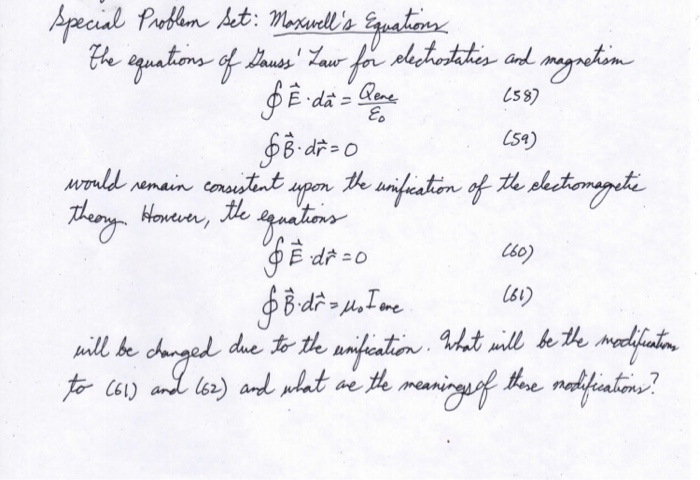 Special Problem Set: Maxwell's Equations
The equations of Gauss' Law for electrostatics and magnetism
∮ E⃗ · da⃗ = Qenc/ε₀ (58)
∮ B⃗ · dr⃗ = 0 (59)
would remain consistent upon the unification of the electromagnetic
theory. However, the equations
∮ E⃗ · dr⃗ = 0 (60)
∮ B⃗ · dr⃗ = μ₀ I enc (61)
will be changed due to the unification. What will be the modifications
to (61) and (62) and what are the meanings of these modifications?